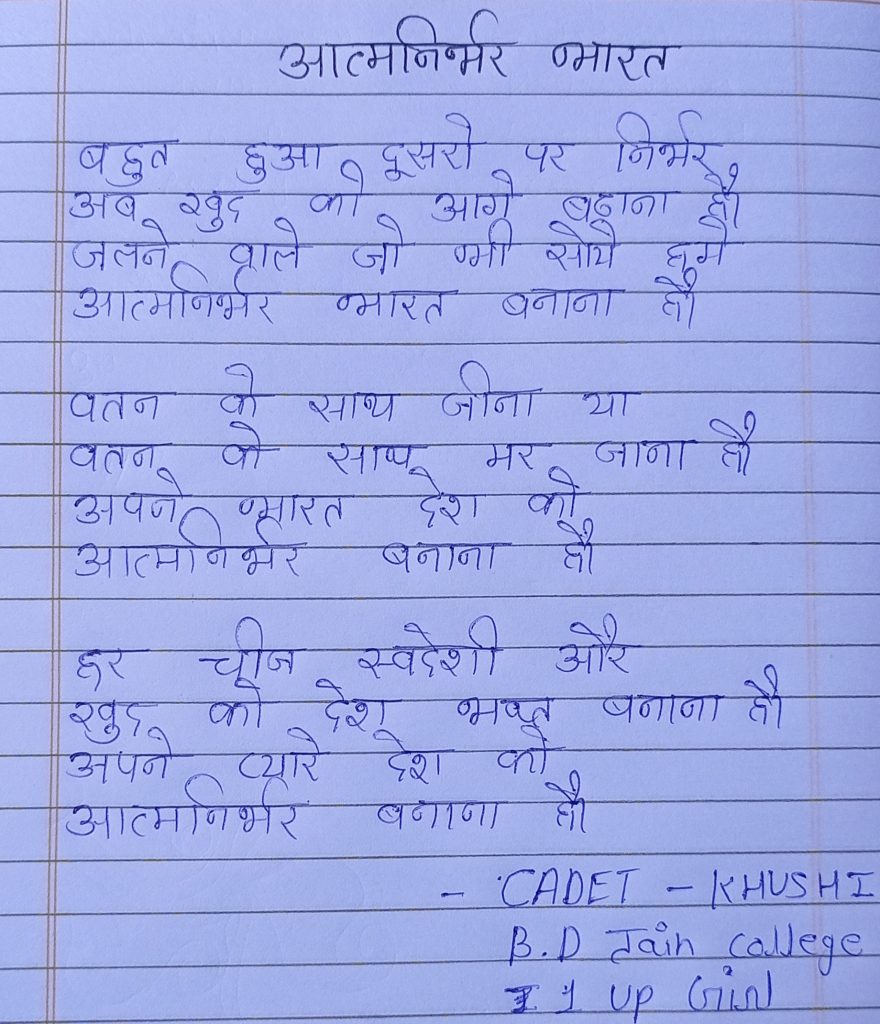 आत्मनिर्भर भारत
बहुत हुआ दूसरो पर निर्भर
अब खुद को आगे बढ़ाना है
जलने वाले जो भी सोचे हमे
आत्मनिर्भर भारत बनाना है
वतन के साथ जीना या
वतन के साथ मर जाना है
अपने भारत देश को
आत्मनिर्भर बनाना है
हर चीज स्वदेशी और
खुद को देश भक्त बनाना है
अपने प्यारे देश को
आत्मनिर्भर बनाना है
- CADET - KHUSHI
B.D Jain college
1 UP Girl